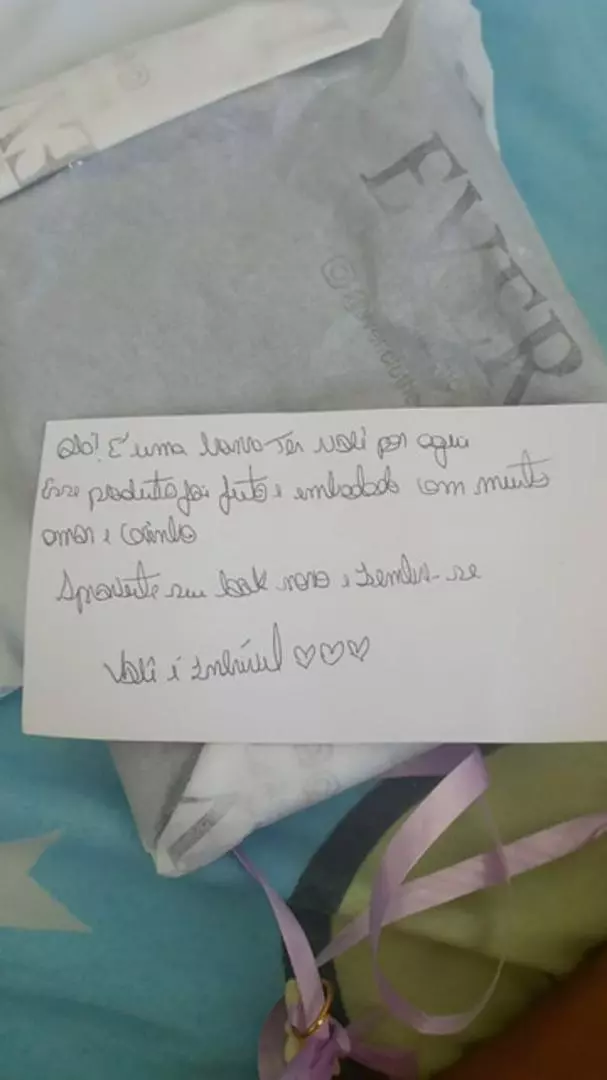 EVER
Olá! É uma honra ter você por aqui
Esse produto foi feito e embalado com muito
amor e carinho
Aproveite seu look novo e lembre-se
Você é incrível ♡♡♡